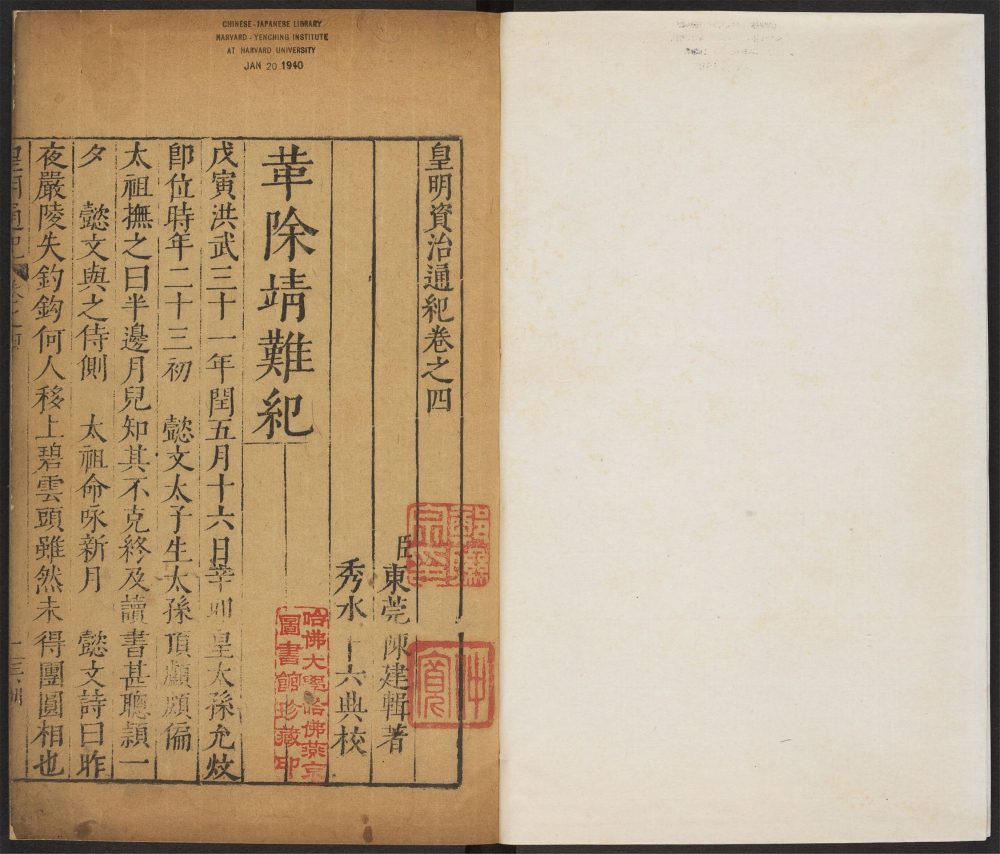 CHINESE-JAPANESE LIBRARY
HARVARD-YENCHING INSTITUTE
AT HARVARD UNIVERSITY
JAN 20 1940
皇明資治通紀卷之四
臣東莞陳建輯著
秀水卜六典校
革除靖難紀
戊寅洪武三十一年閏五月十六日辛卯皇太孫允炆
卽位時年二十三初 懿文太子生太孫頂顱頗偏
太祖撫之曰半邊月兒知其不克終及讀書甚聰穎一
夕 懿文與之侍側 太祖命咏新月 懿文詩曰昨
夜嚴陵失釣鈎何人移上碧雲頭雖然未得團圓相也
皇明通紀 卷之四
哈佛大學哈佛燕京
圖書館珍藏印